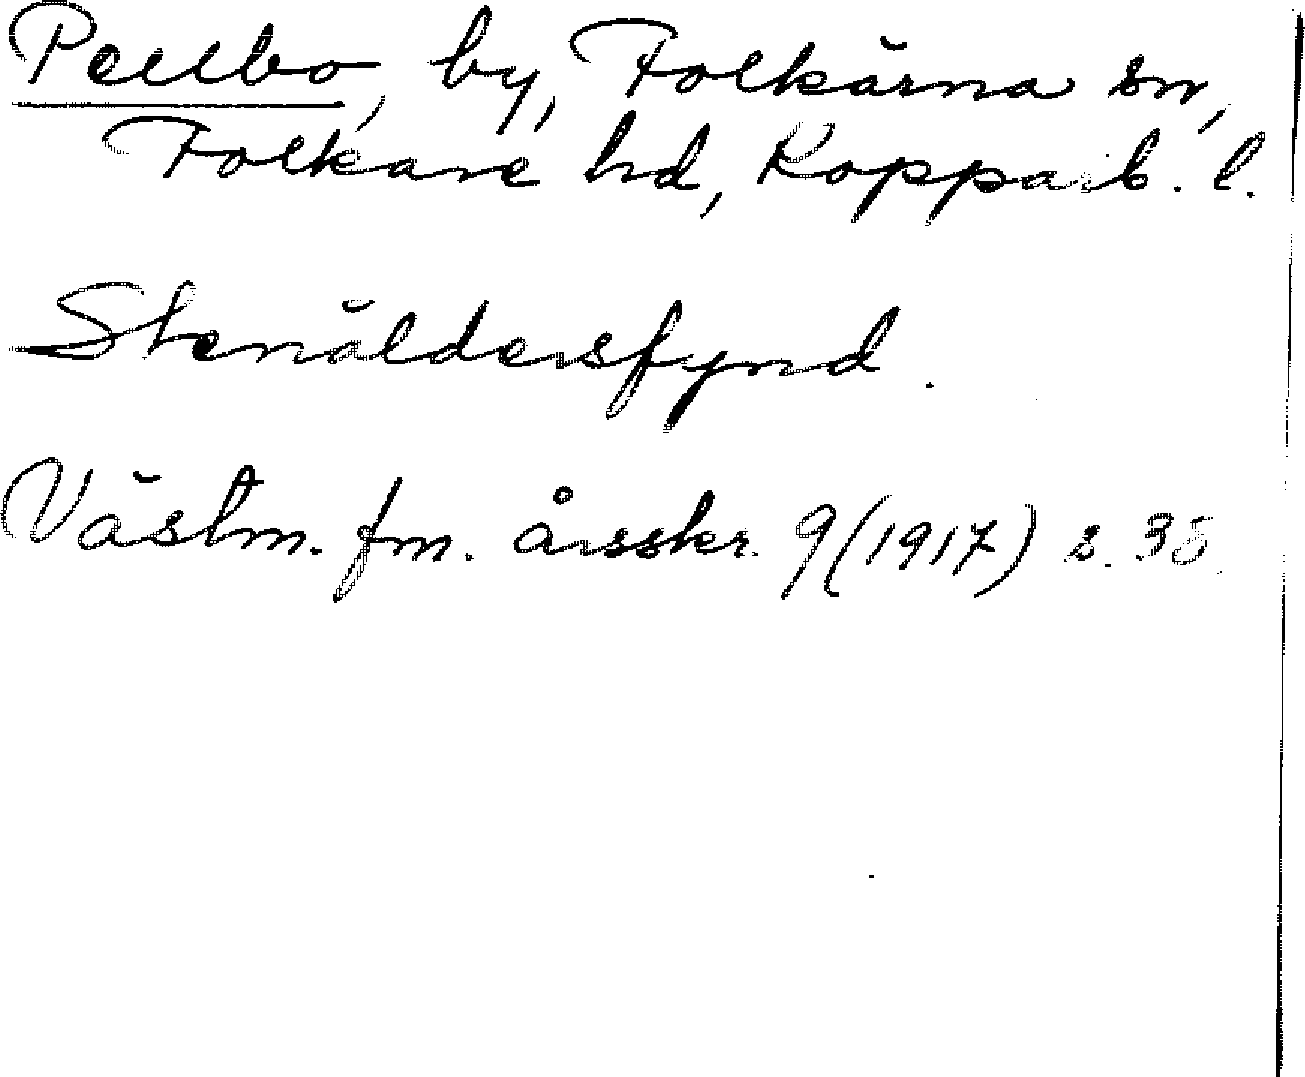 Pellbo, by, Folkärna sn,
Folkare hd, Kopparb. l.
Stenåldersfynd.
Västm. fm. årsskr. 9 (1917) s.